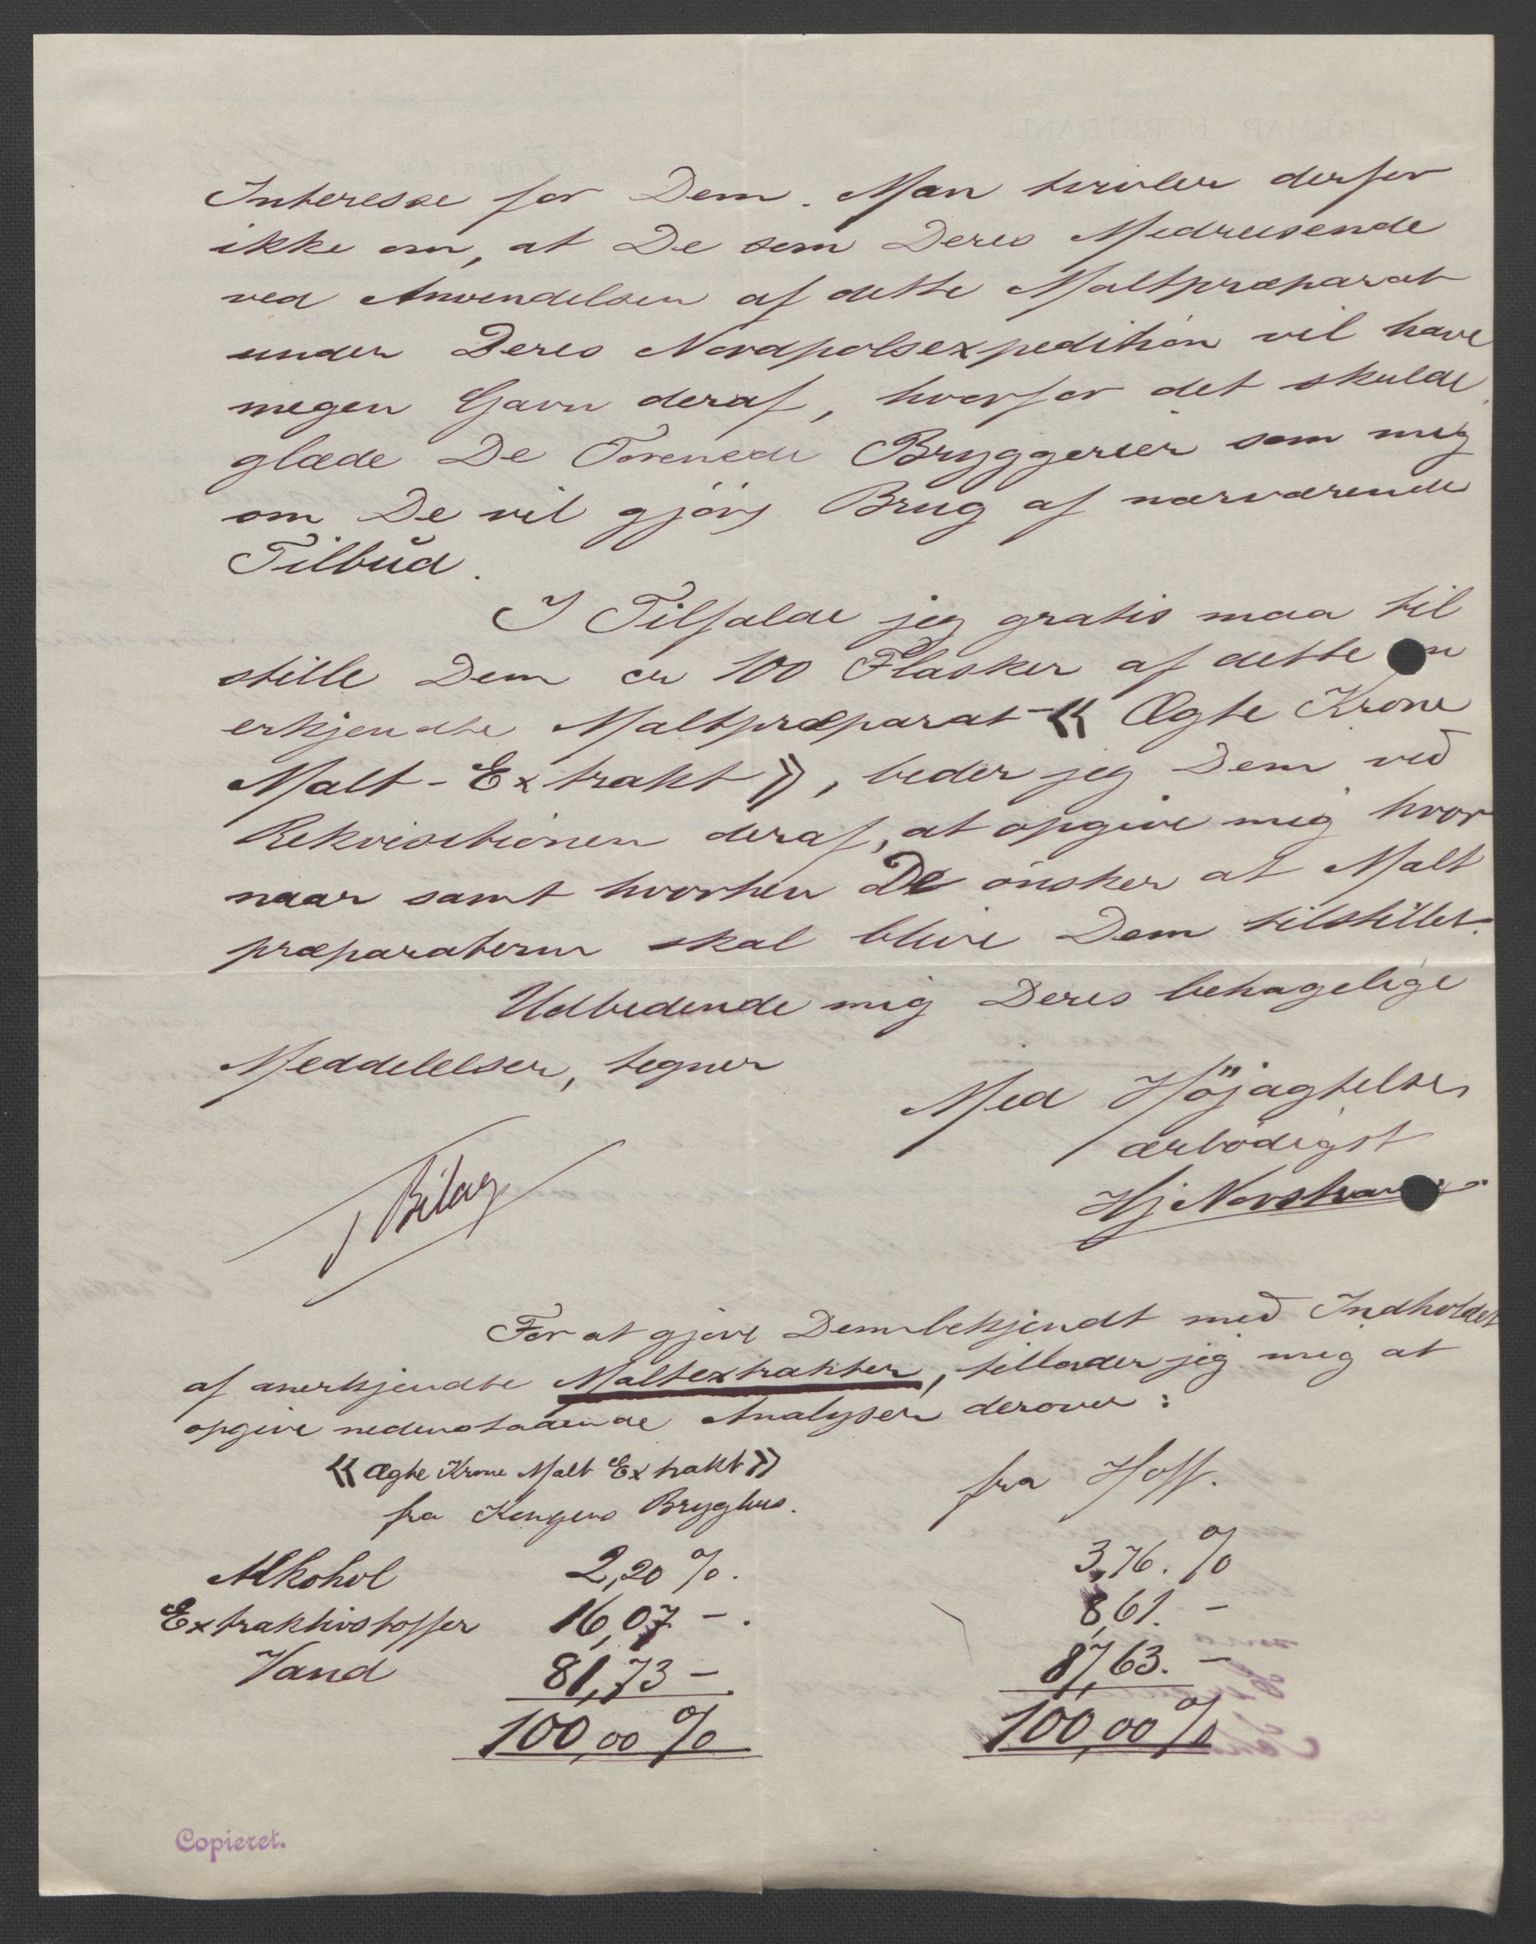 Interesse for Dem. Man tvivler derfor
ikke om, at De som Deres Medreisende
ved Anvendelsen af dette Maltpræparat
under Deres Nordpolsexpedition vil have
megen Gavn deraf, hvorfor det skulde
glæde De Forenede Bryggerier som mig
om De vil gjøre Brug af nærværende
Tilbud.
I Tilfælde jeg gratis maa til
stille Dem ca 100 Flasker af dette an
erkjendte Maltpræparat « Ægte Krone
Malt-Extrakt », beder jeg Dem ved
Rekvisitionen deraf, at opgive mig hvor
naar samt hvorhen De ønsker at Malt
præparaterne skal blive Dem tilstillet.
Udbedende mig Deres behagelige
Meddelelser, tegner
Med Höjagtelse,
ærbödigst
Hj Norstrand
1 Bilag
For at gjøre Dem bekjendt med Indholdet
af anerkjendte Maltextrakter, tillader jeg mig at
opgive nedenstaaende Analyser derover:
« Ægte Krone Malt Extrakt »
fra Kongens Bryghus.
fra Hoff.
Alkohol 2,20 %. 3,76. %
Extraktivstoffer 16,07 -. 8,61. -
Vand 81,73 - 87,63. -
100,00 % 100,00 %
Copieret.